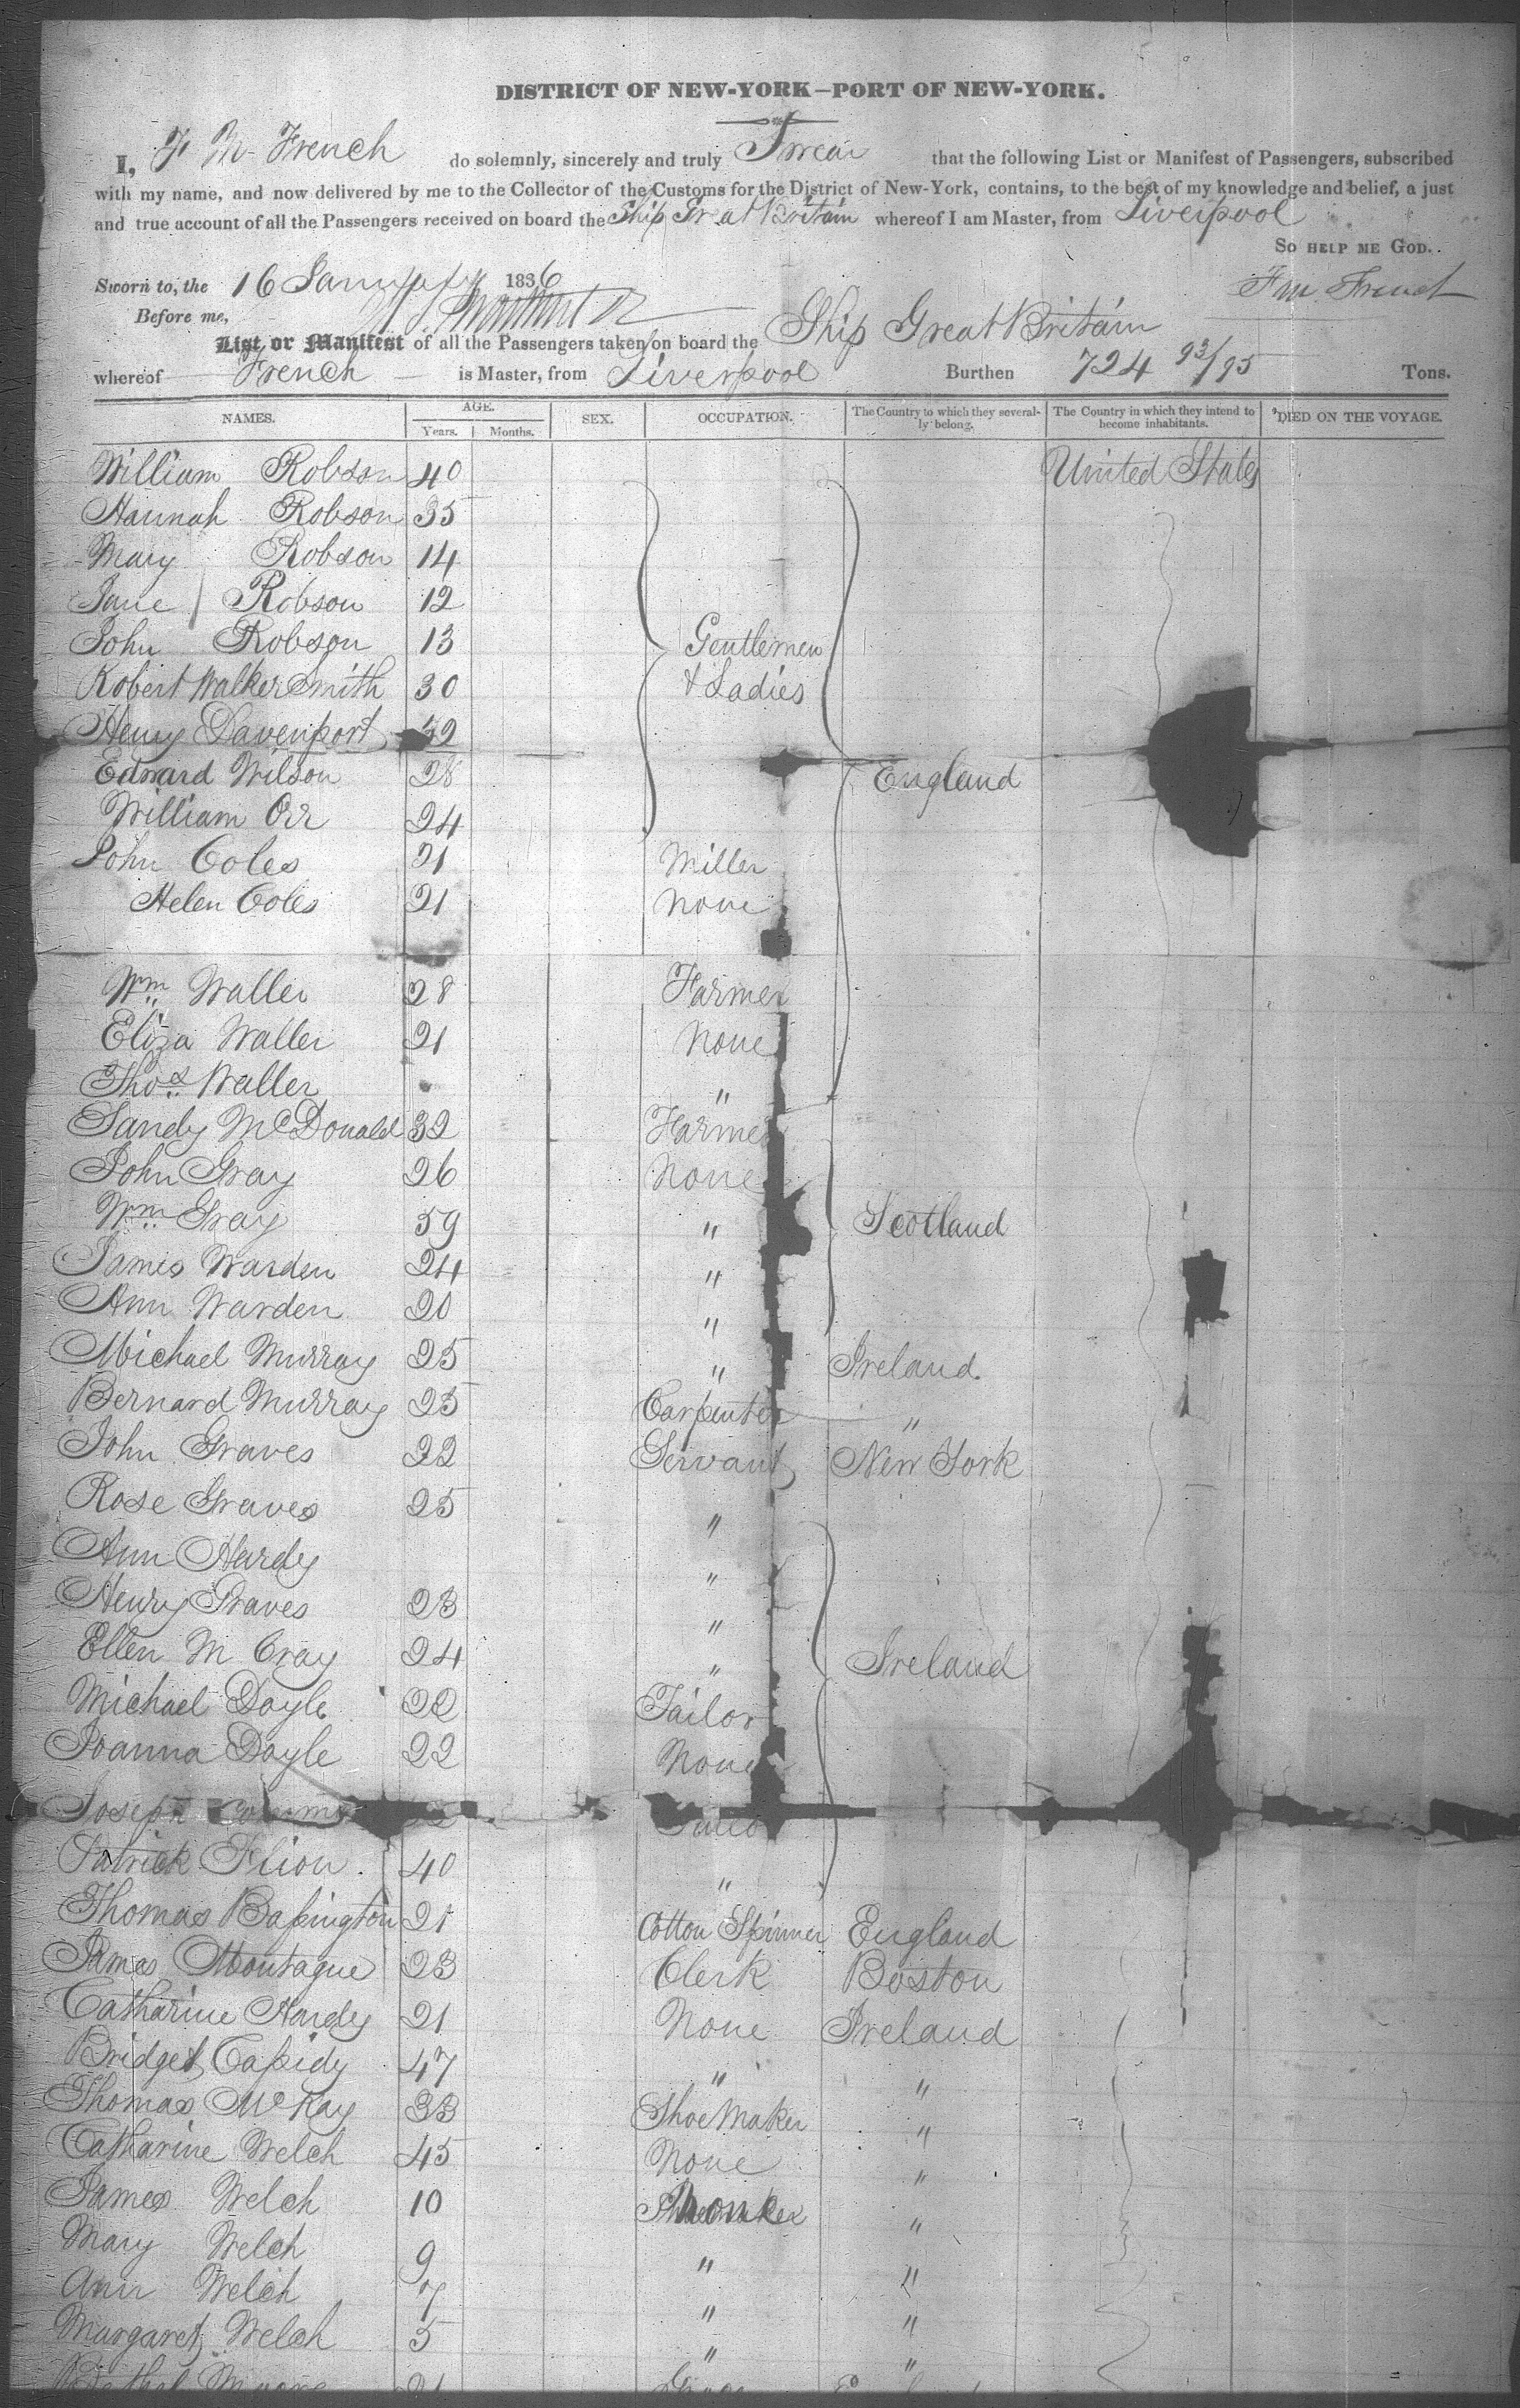 DISTRICT OF NEW-YORK—PORT OF NEW-YORK.
I, F M French do solemnly, sincerely and truly Swear that the following List or Manifest of Passengers, subscribed
with my name, and now delivered by me to the Collector of the Customs for the District of New-York, contains, to the best of my knowledge and belief, a just
and true account of all the Passengers received on board the Ship Great Britain whereof I am Master, from Liverpool
SO HELP ME GOD.
Sworn to, the 16 January 1836 F M French
Before me,
List or Manifest of all the Passengers taken on board the Ship Great Britain
whereof French is Master, from Liverpool Burthen 724 93/95 Tons.
NAMES. AGE. Years. Months. SEX. OCCUPATION. The Country to which they severally belong. The Country in which they intend to become inhabitants. DIED ON THE VOYAGE.
William Robson 40 United States
Hannah Robson 35
Mary Robson 14
Jane Robson 12
John Robson 13 Gentlemen
Robert Walker Smith 30 & Ladies
Henry Davenport
Edward Wilson 28 England
William Orr 24
John Coles 21 Miller
Helen Coles 21 None
Wm Waller 28 Farmer
Eliza Waller 21 None
Thos Waller "
Sandy McDonald 32 Farmer
John Gray 26 None
Wm Gray 59 " Scotland
James Warden 24 "
Ann Warden 20 "
Michael Murray 25 " Ireland.
Bernard Murray 25 Carpenter "
John Graves 22 Servant New York
Rose Graves 25 "
Ann Hardy "
Henry Graves 23 "
Ellen M Cray 24 " Ireland
Michael Doyle 22 Tailor
Joanna Doyle 22 None
Joseph
Patrick 40 "
Thomas Bassington 21 Cotton Spinner England
James Montague 23 Clerk Boston
Catharine Hardy 21 None Ireland
Bridget Cassidy 47 " "
Thomas McKay 33 Shoe Maker "
Catharine Welch 45 None "
James Welch 10 None "
Mary Welch 9 " "
Ann Welch 7 " "
Margaret Welch 5 " "